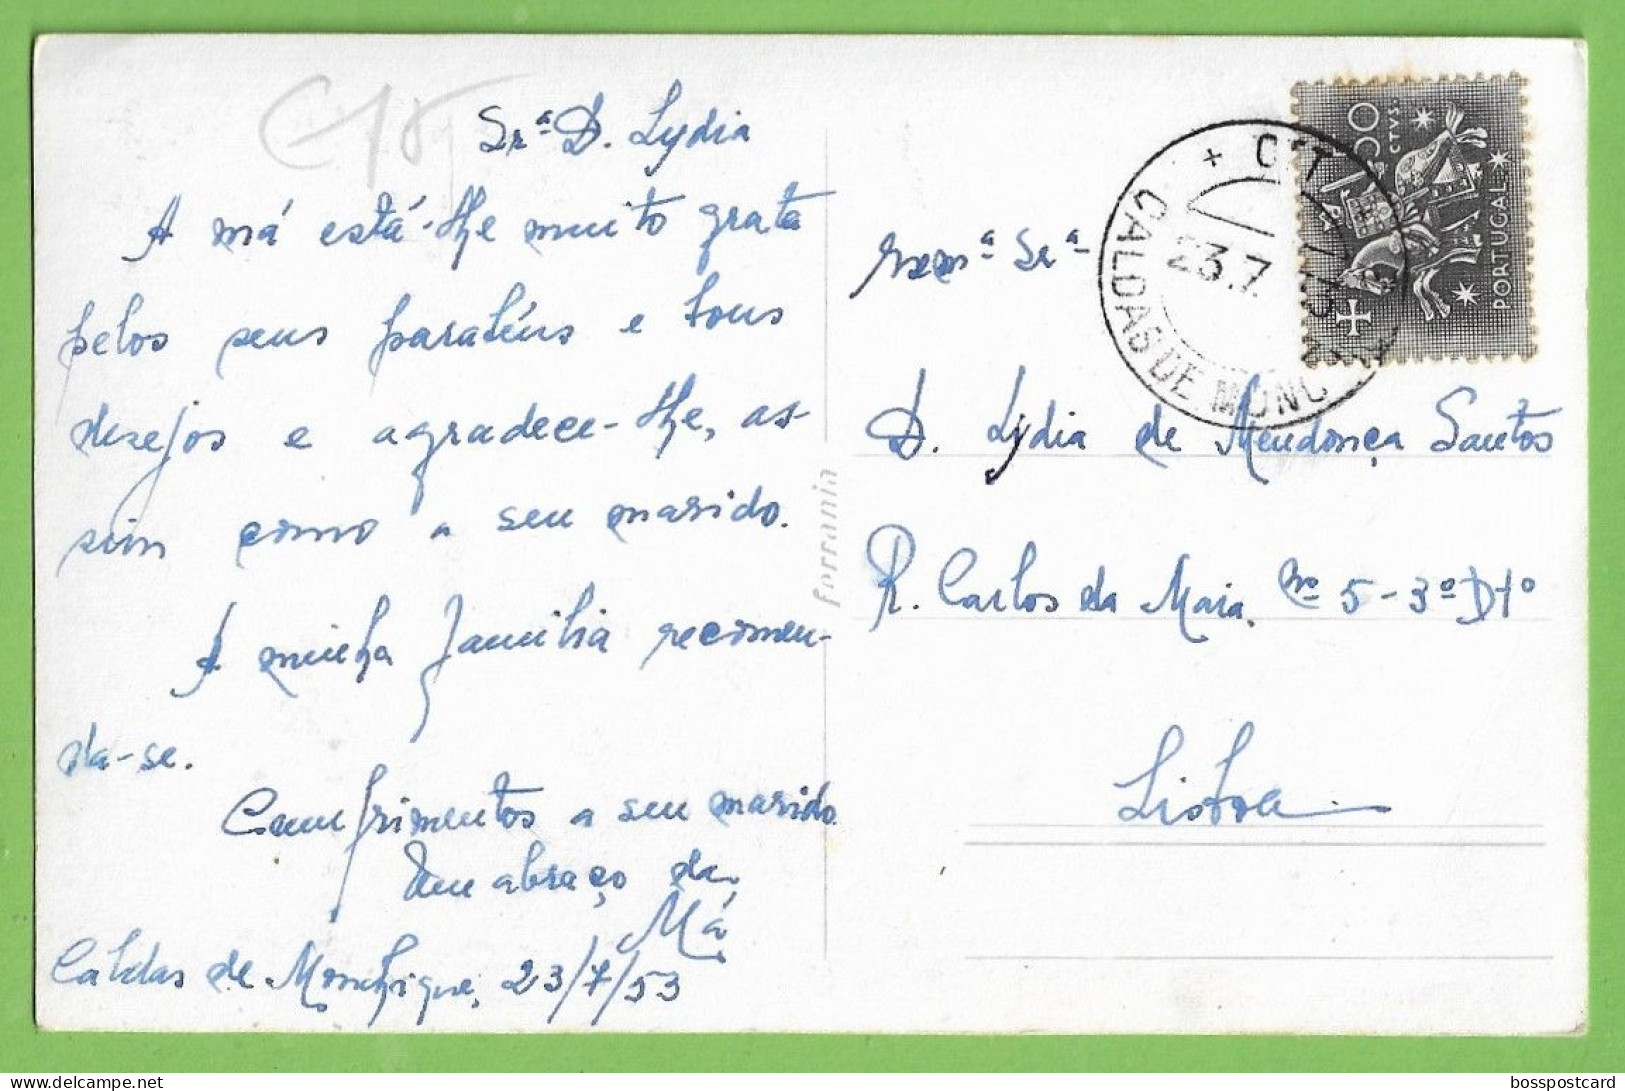 Srª D. Lydia
A má está-lhe muito grata
pelos seus parabéns e bons
desejos e agradece-lhe, as-
sim como a seu marido.
A minha familia recomen-
da-se.
Cumprimentos a seu marido
Um abraço da
Má
Caldas de Monchique, 23/7/53
Ferrania
Exmª Srª
D. Lydia de Mendonça Santos
R. Carlos da Maia. nº 5-3º Dtº
Lisboa
CTT
23.7
CALDAS DE MONC
50 CTVS
PORTUGAL
bosspostcard
www.delcampe.net